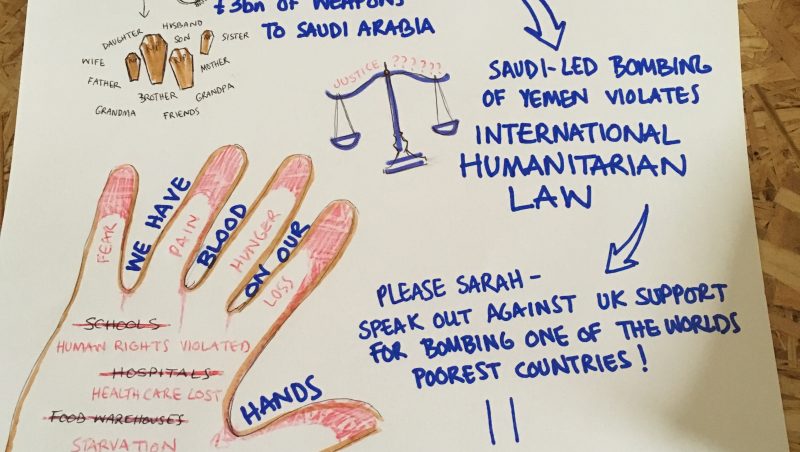 £3bn OF WEAPONS
TO SAUDI ARABIA
HUSBAND
DAUGHTER
SON
SISTER
WIFE
MOTHER
FATHER
BROTHER
GRANDPA
GRANDMA
FRIENDS
JUSTICE ??????
SAUDI-LED BOMBING
OF YEMEN VIOLATES
INTERNATIONAL
HUMANITARIAN
LAW
WE HAVE
BLOOD
ON OUR
HANDS
FEAR
PAIN
HUNGER
LOSS
SCHOOLS
HUMAN RIGHTS VIOLATED
HOSPITALS
HEALTHCARE LOST
FOOD WAREHOUSES
STARVATION
PLEASE SARAH-
SPEAK OUT AGAINST UK SUPPORT
FOR BOMBING ONE OF THE WORLDS
POOREST COUNTRIES!